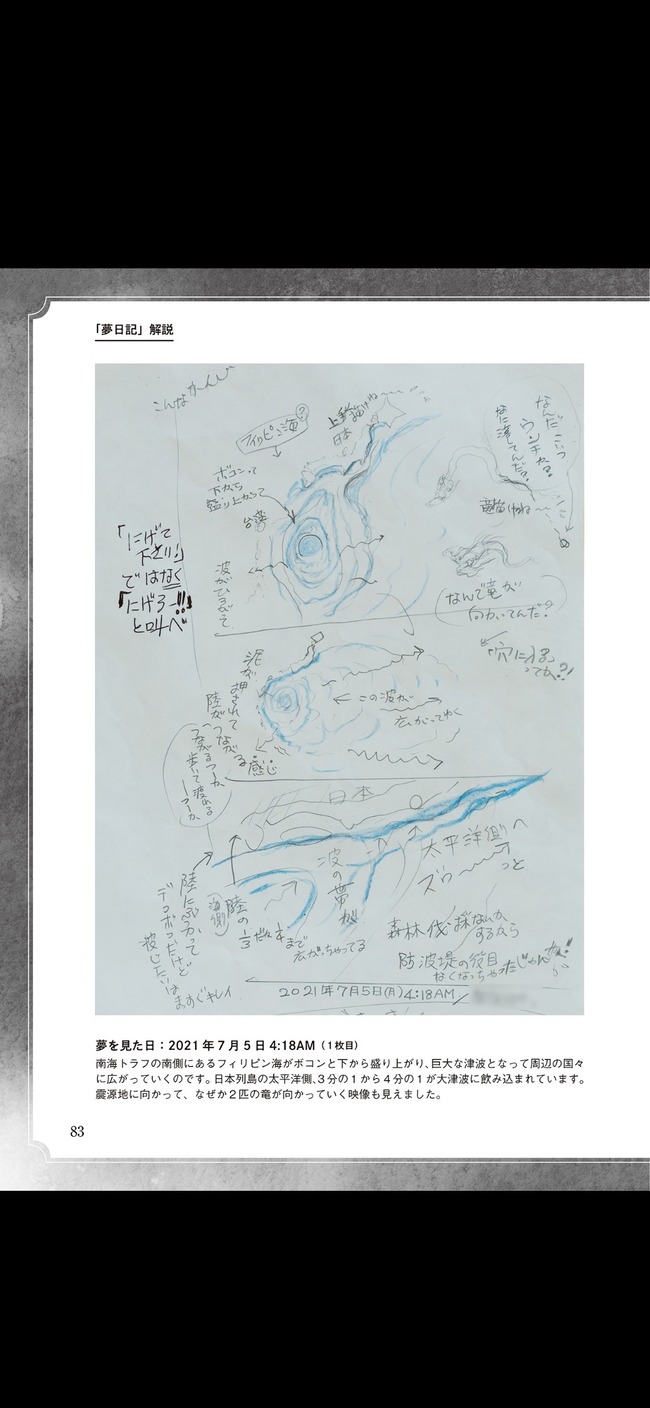 「夢日記」解説
こんなかんじ
フィリピン海?
上手く描けね〜
日本
ボコンって
下から
盛り上がって
台湾
波がひろがって
なんだこいつ
ウンチか?
なに落としてんだ?
竜描けね〜
なんで竜が
向かってんだ?
「穴に入る」
ってか?!
「にげて
下さい!」
ではなく
「にげろー!!」
と叫べ
泥が押されて
陸がつながる感じ
歩いて渡れる
この波が
広がってゆく
日本
太平洋側へ
ズゥ〜〜っと
波の帯が
陸の
海側
まで
広がっちゃってる
陸にぶつかって
デコボコだけど
波じたいは
まっすぐキレイ
森林伐採ないか、
するなら
防波堤の役目
なくなっちゃったじゃんか!!
2021年7月5日(月)4:18AM
夢を見た日:2021年7月5日 4:18AM(1枚目)
南海トラフの南側にあるフィリピン海がボコンと下から盛り上がり、巨大な津波となって周辺の国々
に広がっていくのです。日本列島の太平洋側、3分の1から4分の1が大津波に飲み込まれています。
震源地に向かって、なぜか2匹の竜が向かっていく映像も見えました。
83